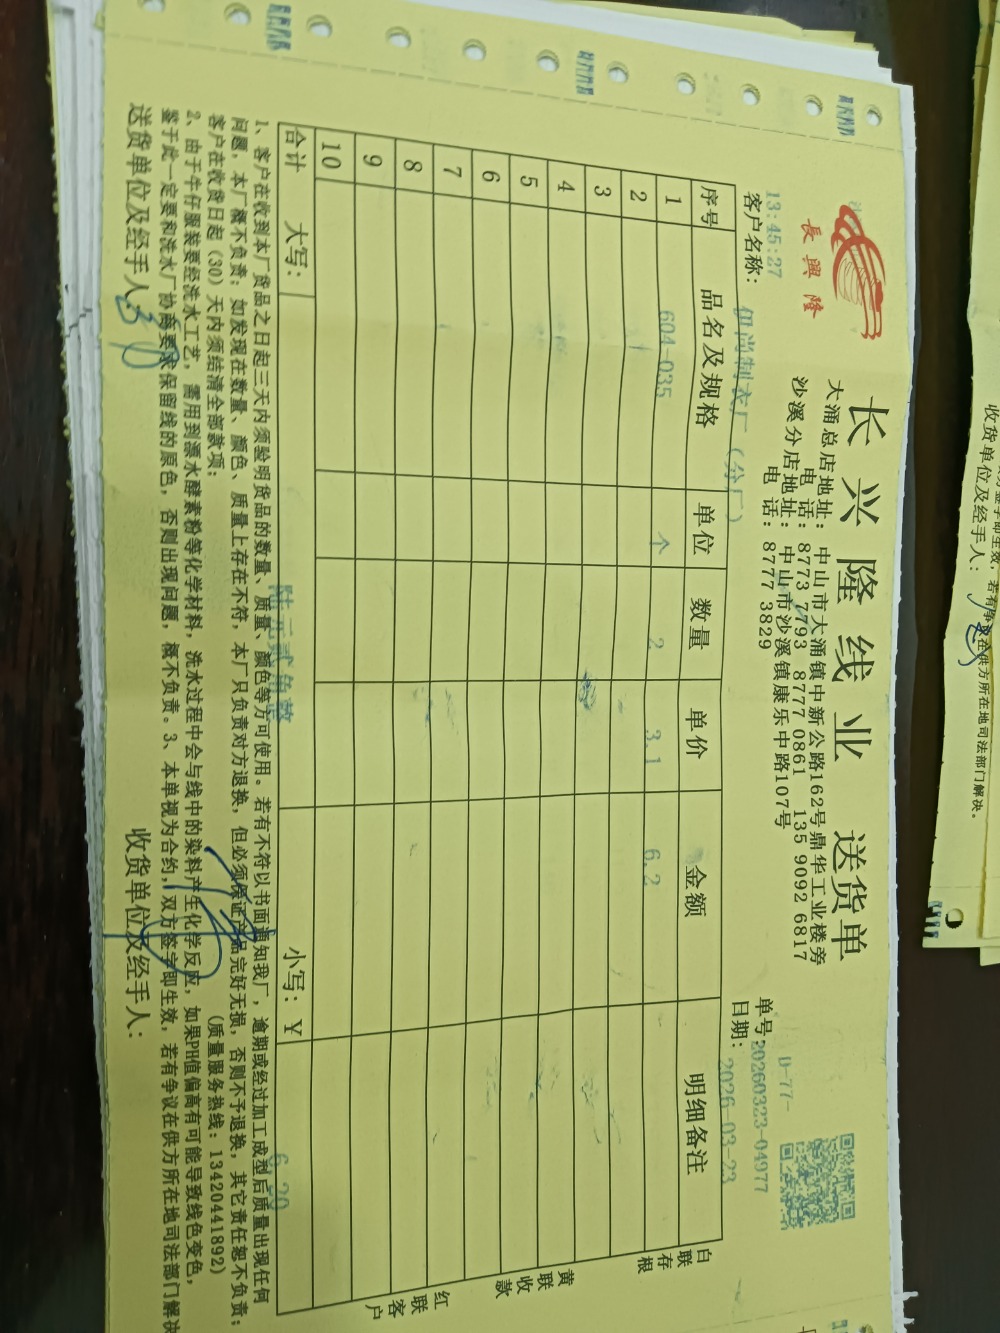 長興隆
长兴隆线业 送货单
大涌总店地址: 中山市大涌镇中新公路162号鼎华工业楼旁
电 话: 8773 7793 8777 0861 135 9092 6817
沙溪分店地址: 中山市沙溪镇康乐中路107号
电 话: 8777 3829
D-77-
13:45:27
单号:20260323-04977
客户名称: 伊尚制衣厂(分厂)
日期: 2026-03-23
序号 品名及规格 单位 数量 单价 金额 明细备注
1 604-035 个 2 3.1 6.2
2
3
4
5
6
7
8
9
10
合计 大写: 陆元贰角整 小写: ¥ 6.20
白联存根
黄联收款
红联客户
1、客户在收到本厂货品之日起三天内须验明货品的数量、质量、颜色等方可使用。若有不符以书面通知我厂,逾期或经过加工成型后质量出现任何
问题,本厂概不负责;如发现在数量、颜色、质量上存在不符,本厂只负责对方退换,但必须保证产品完好无损,否则不予退换,其它责任恕不负责;
客户在收货日起(30)天内须结清全部款项; (质量服务热线: 13420441892)
2、由于牛仔服装要经洗水工艺,需用到漂水酵素粉等化学材料,洗水过程中会与线中的染料产生化学反应,如果PH值偏高有可能导致线色变色,
鉴于此一定要和洗水厂协商要求保留线的原色,否则出现问题,概不负责。3、本单视为合约,双方签字即生效,若有争议在供方所在地司法部门解决
送货单位及经手人: 收货单位及经手人:
在供方所在地司法部门解决。
收货单位及经手人: